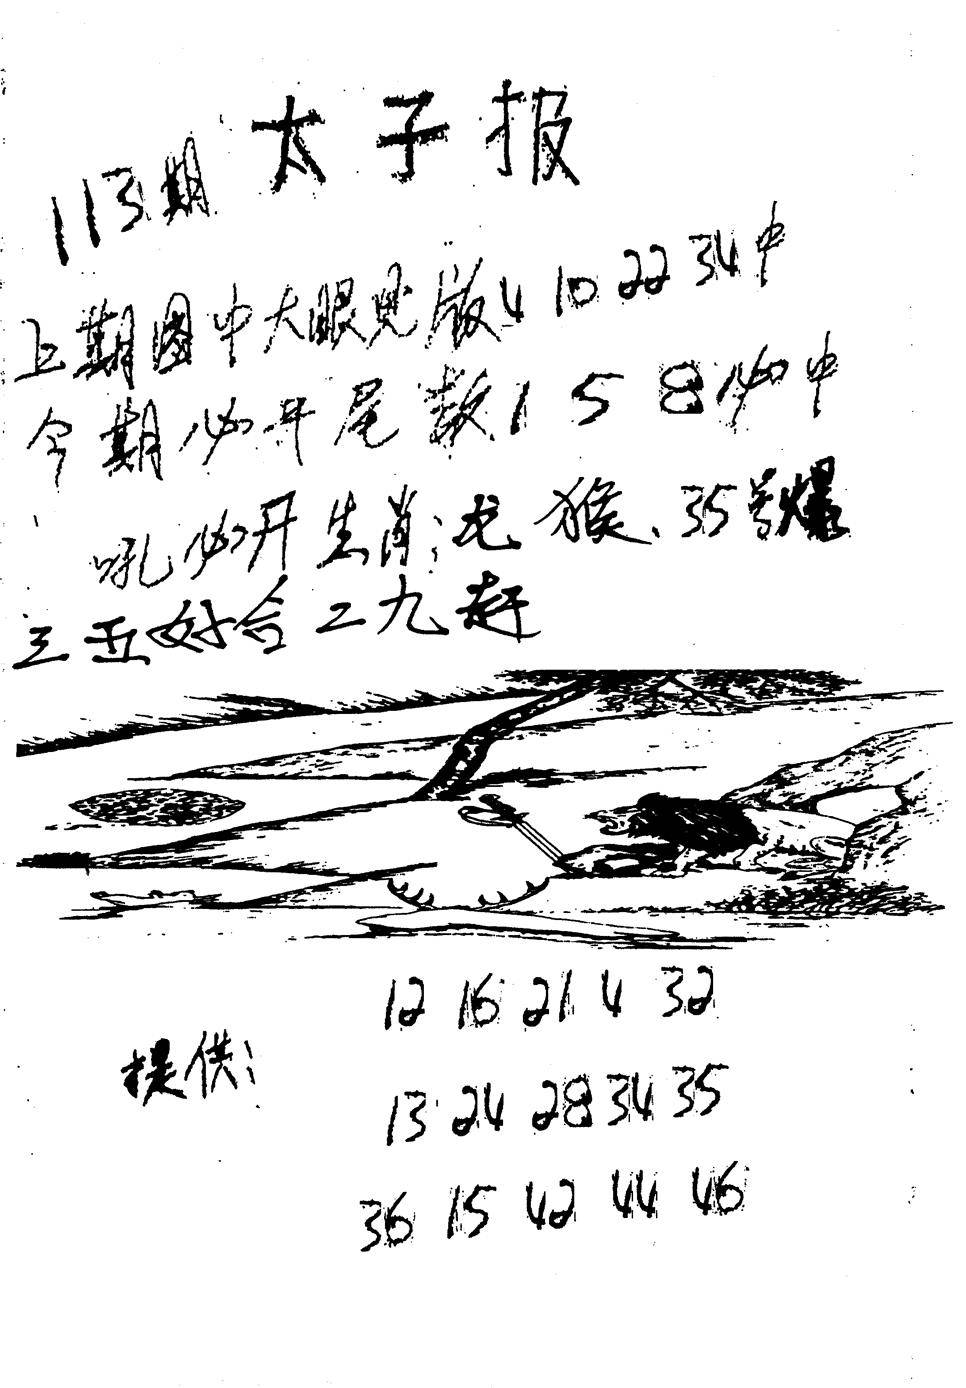 太子报
113期
上期图中大眼见版4 10 22 34中
今期必开尾数1 5 8必中
吼必开生肖:龙猴、35号爆
三五好合二九赶
12 16 21 4 32
提供:
13 24 28 34 35
36 15 42 44 46